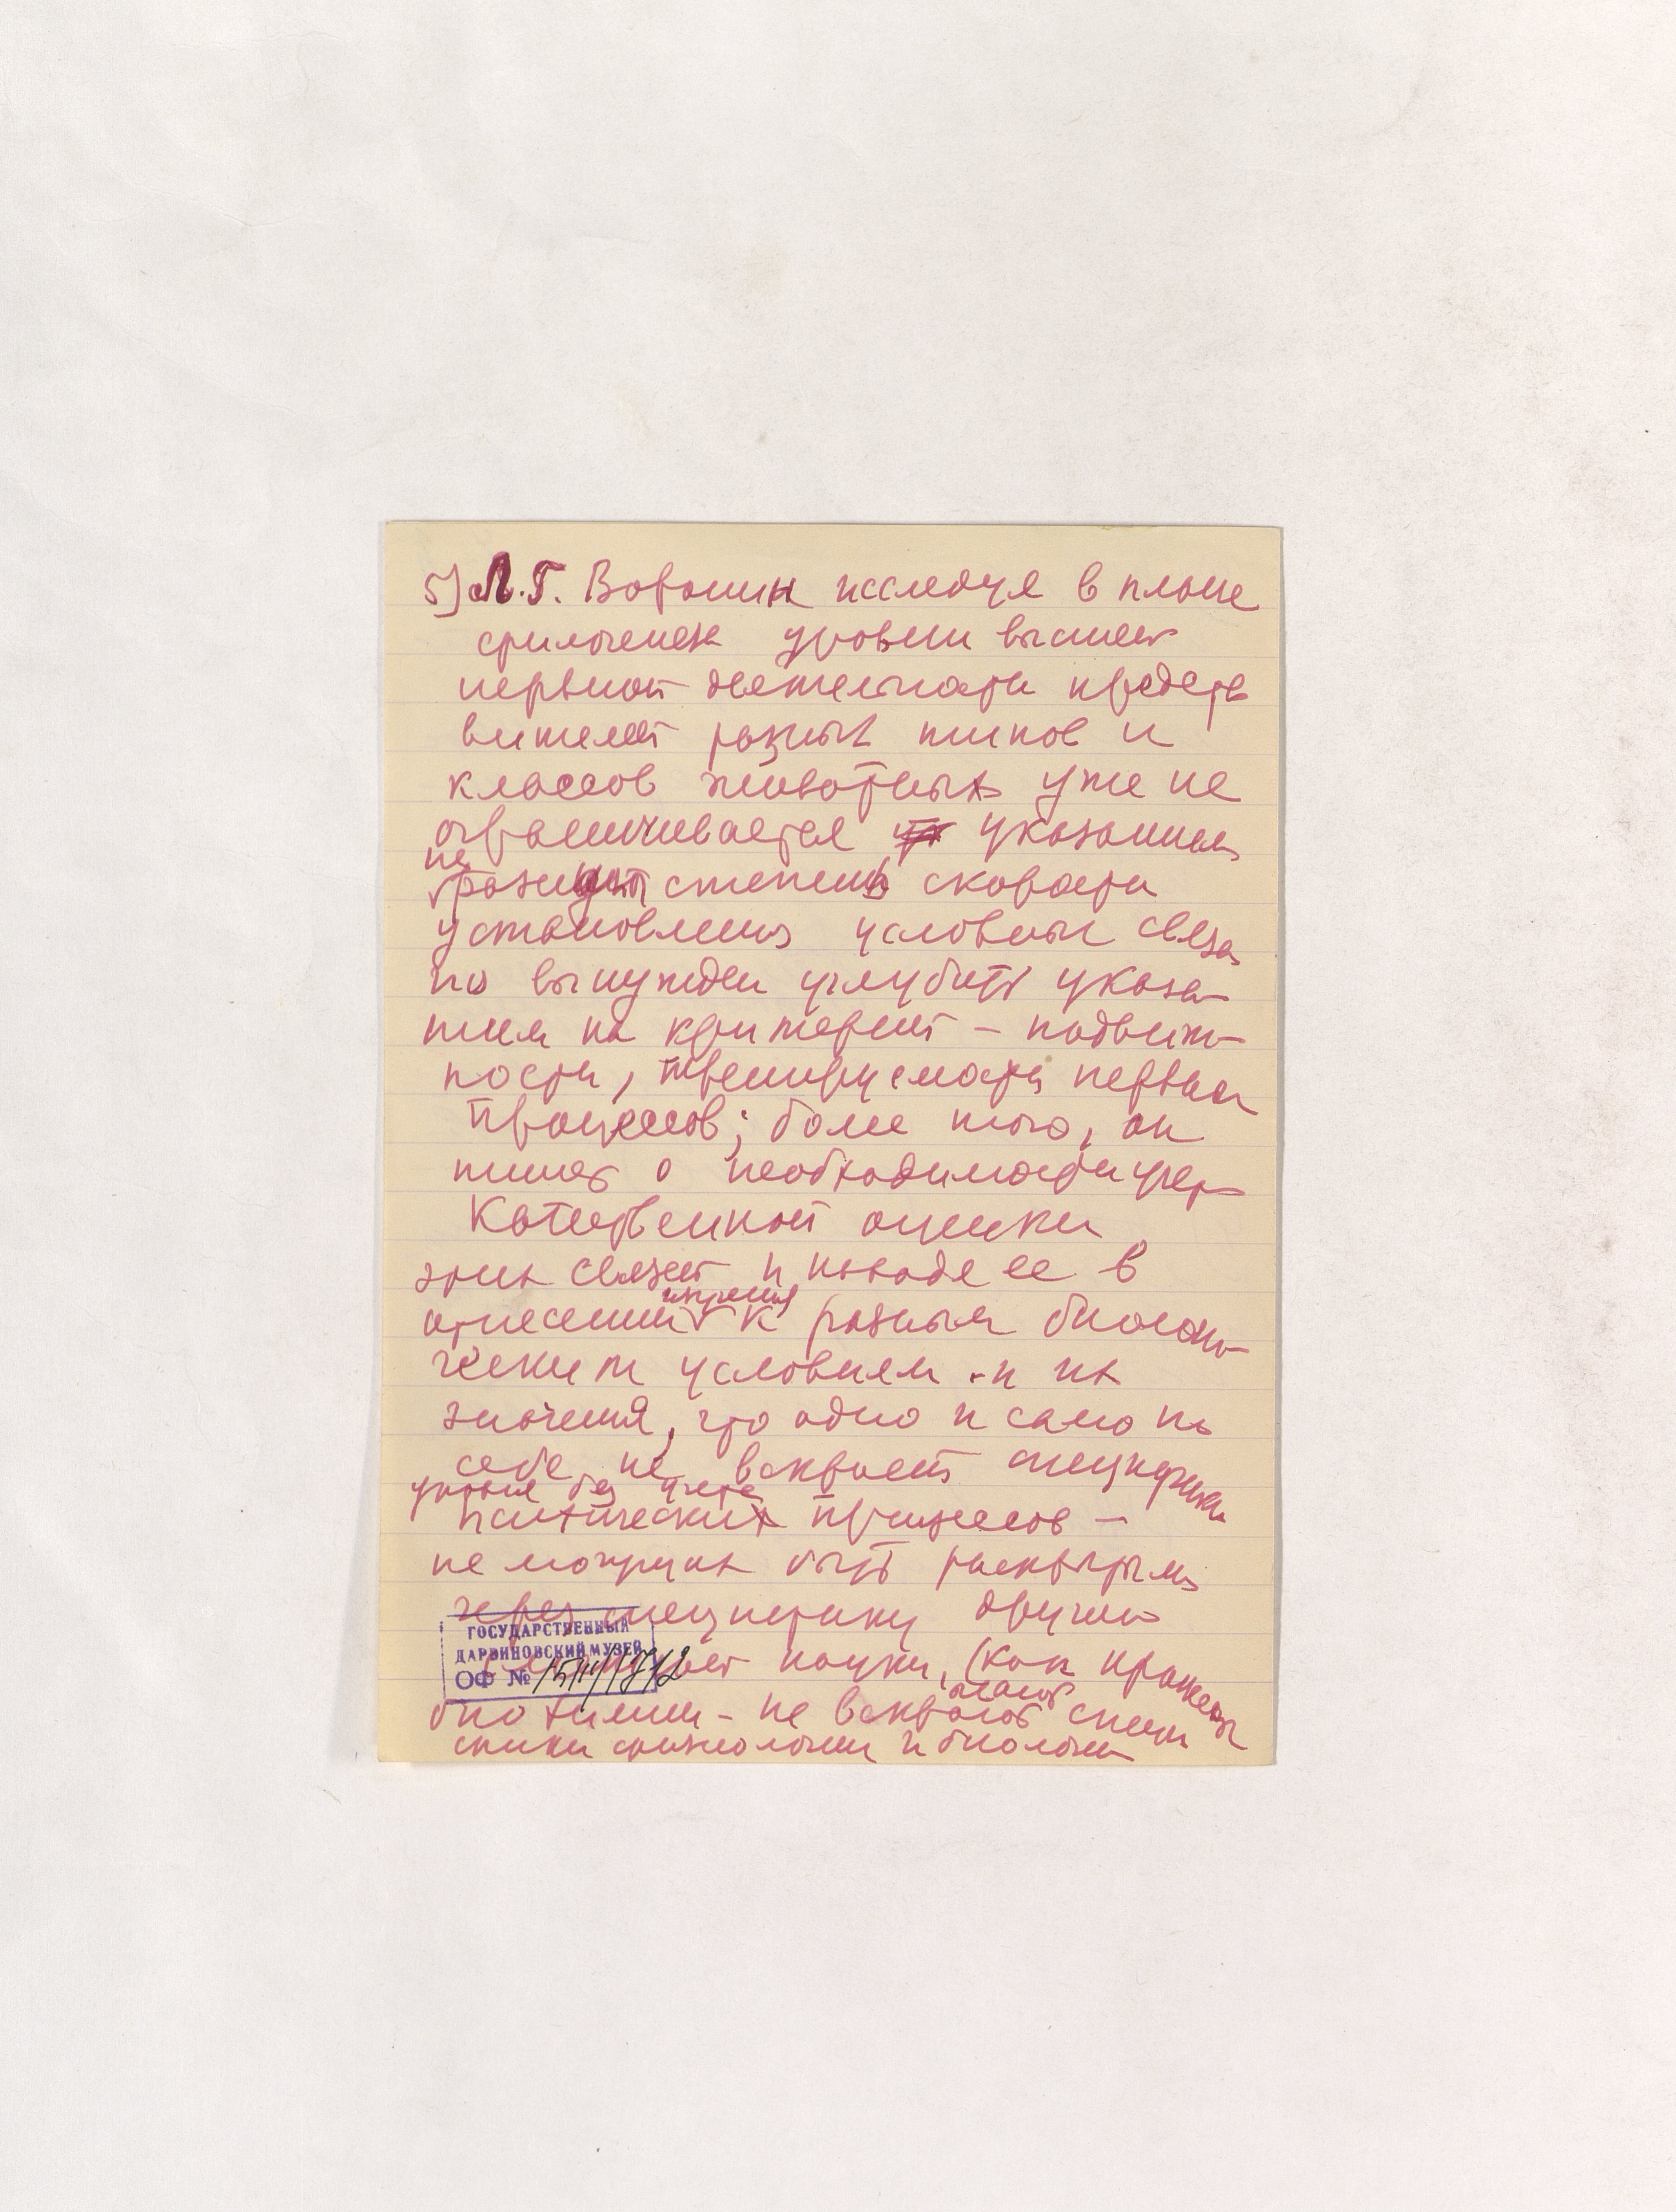 5) Л.Г. Воронин исследуя в плане
филогенеза уровни высшей
нервной деятельности предста
вителей разных типов и
классов животных уже не
ограничивается указанием
на разную степень скорости
установления условных связе
но вынужден углубить указа-
ния на критерий – подвиж-
ности, тренируемости нервных
процессов; более того, он
пишет о необходимости
качественной оценки
этих связей и
отнесении к разным биологи-
ческим условиям и их
значения, что одно и само по
себе не вскрывает специфики
учтенные без учета
психических процессов –
не могущих быть раскрытыми
через специфику других
науки, (как
биохимии – не вскрывают специ
фики физиологии и биологии
ГОСУДАРСТВЕННЫЙ
ДАРВИНОВСКИЙ МУЗЕЙ
ОФ №